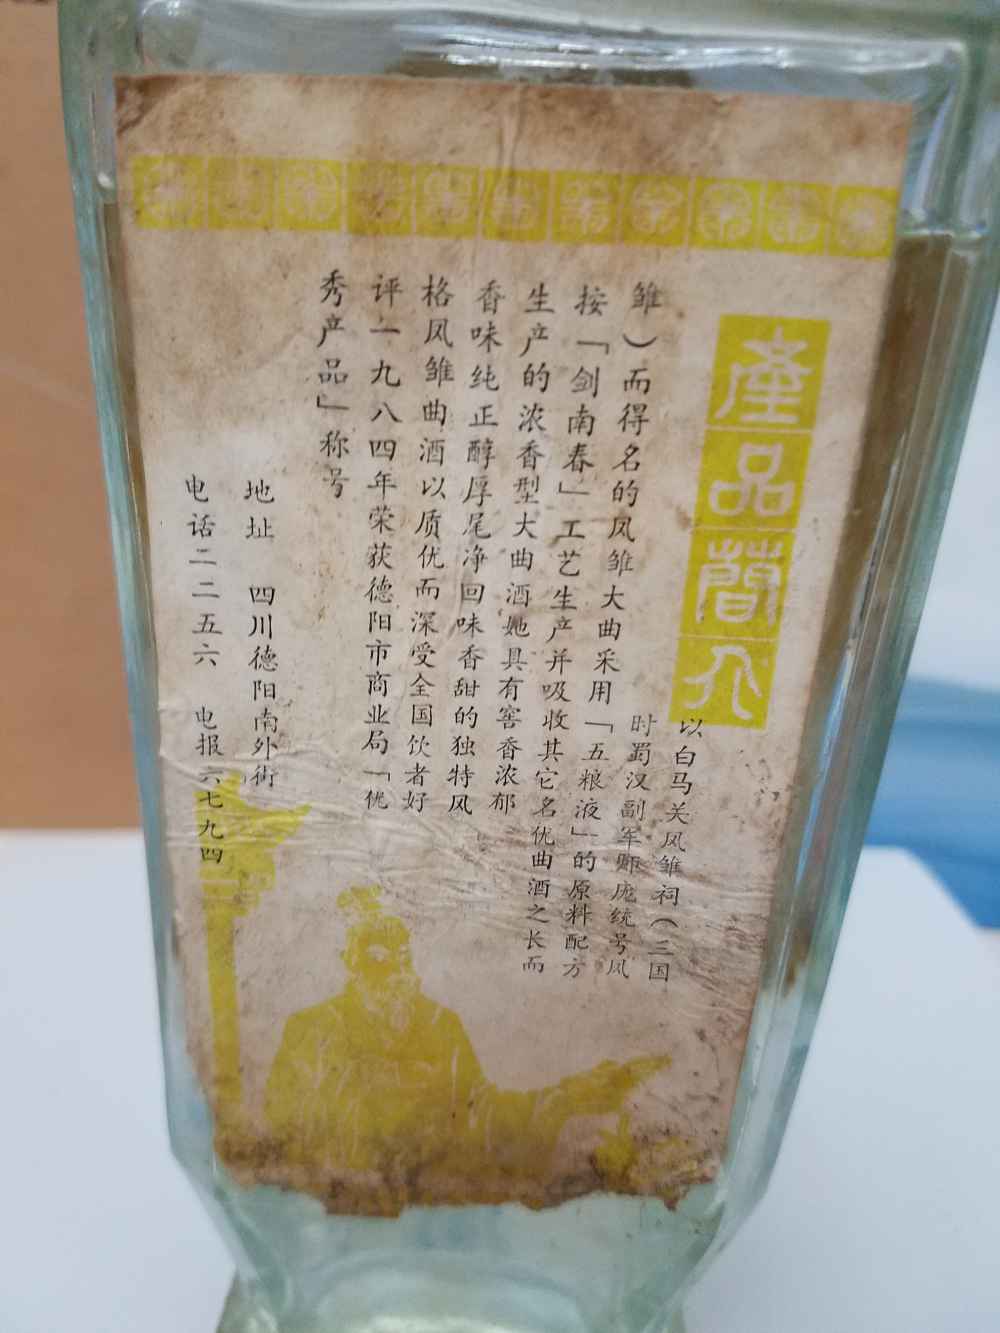 產品簡介
以白马关凤雏祠（三国
时蜀汉副军师庞统号凤
雏）而得名的凤雏大曲采用「五粮液」的原料配方
按「剑南春」工艺生产并吸收其它名优曲酒之长而
生产的浓香型大曲酒她具有窖香浓郁
香味纯正醇厚尾净回味香甜的独特风
格凤雏曲酒以质优而深受全国饮者好
评一九八四年荣获德阳市商业局「优
秀产品」称号
地址 四川德阳南外街
电话二二五六 电报六七九四